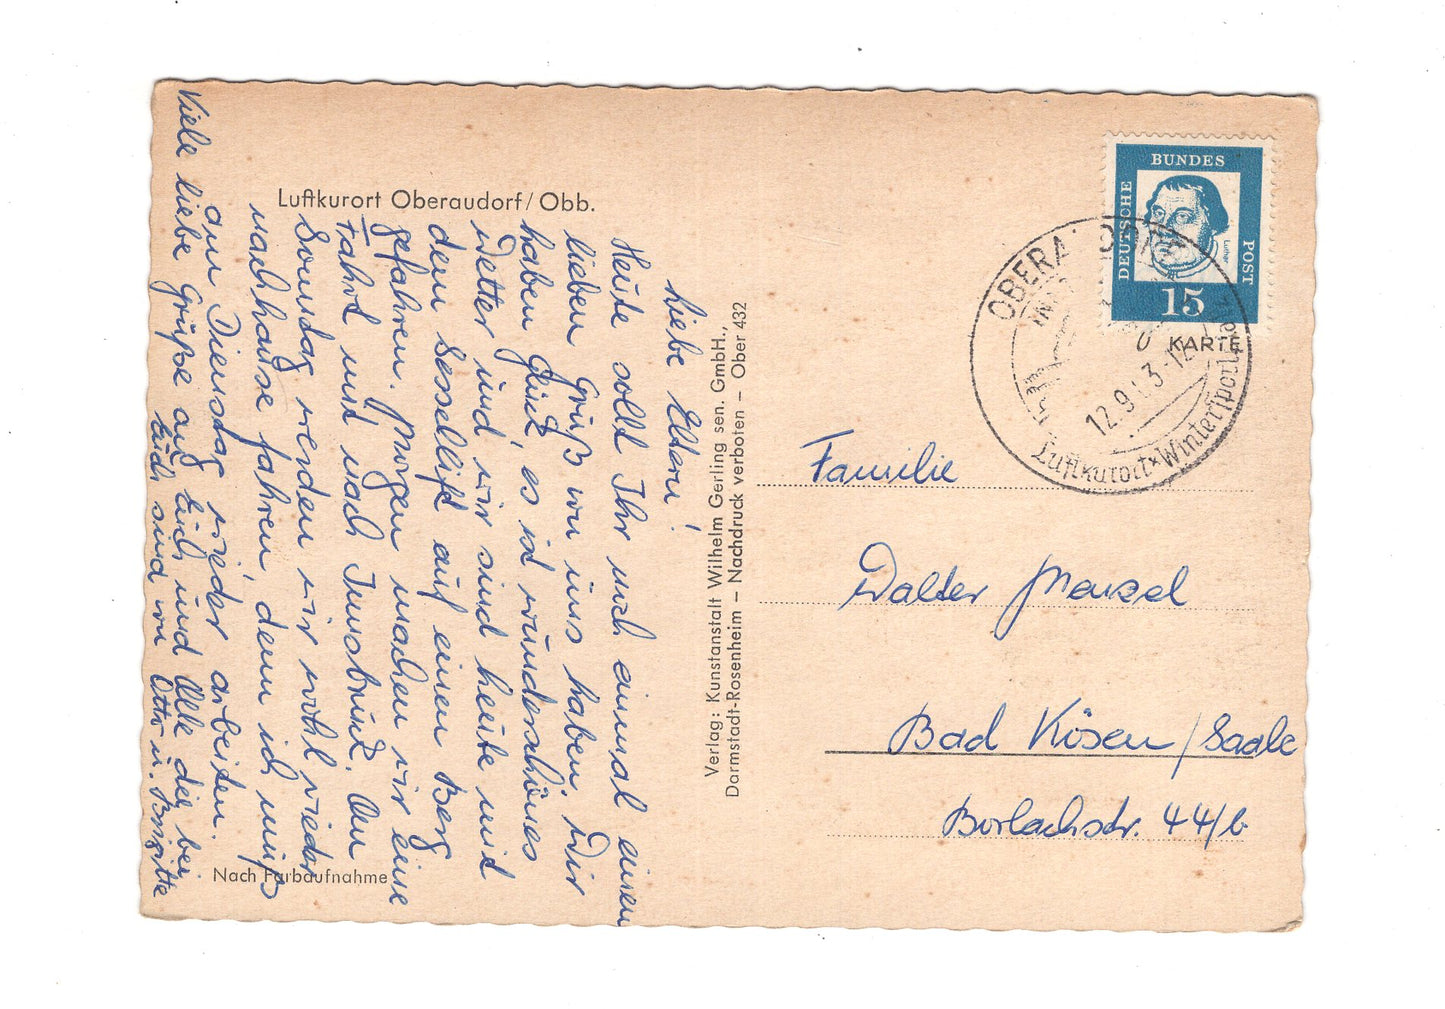 Luftkurort Oberaudorf/Obb.
Liebe Eltern!
Heute sollt Ihr noch einmal einen
lieben Gruß von uns haben. Wir
haben Glück es ist wunderschönes
Wetter und wir sind heute mit
dem Sessellift auf einen Berg
gefahren. Morgen machen wir eine
Fahrt mit nach Innsbruck. Am
Sonntag werden wir wohl wieder
nachhause fahren, denn ich muß
am Dienstag wieder arbeiten.
Viele liebe Grüße an Euch und Alle die bei
Euch sind von Otto u. Brigitte
Nach Farbaufnahme
Verlag: Kunstanstalt Wilhelm Gerling sen. GmbH.,
Darmstadt-Rosenheim – Nachdruck verboten – Ober 432
DEUTSCHE BUNDES POST
Luther
15
KARTE
OBERAUDORF
12.9.63-12
Luftkurort × Wintersportplatz
Familie
Walter Menzel
Bad Kösen/Saale
Borlachstr. 44/b